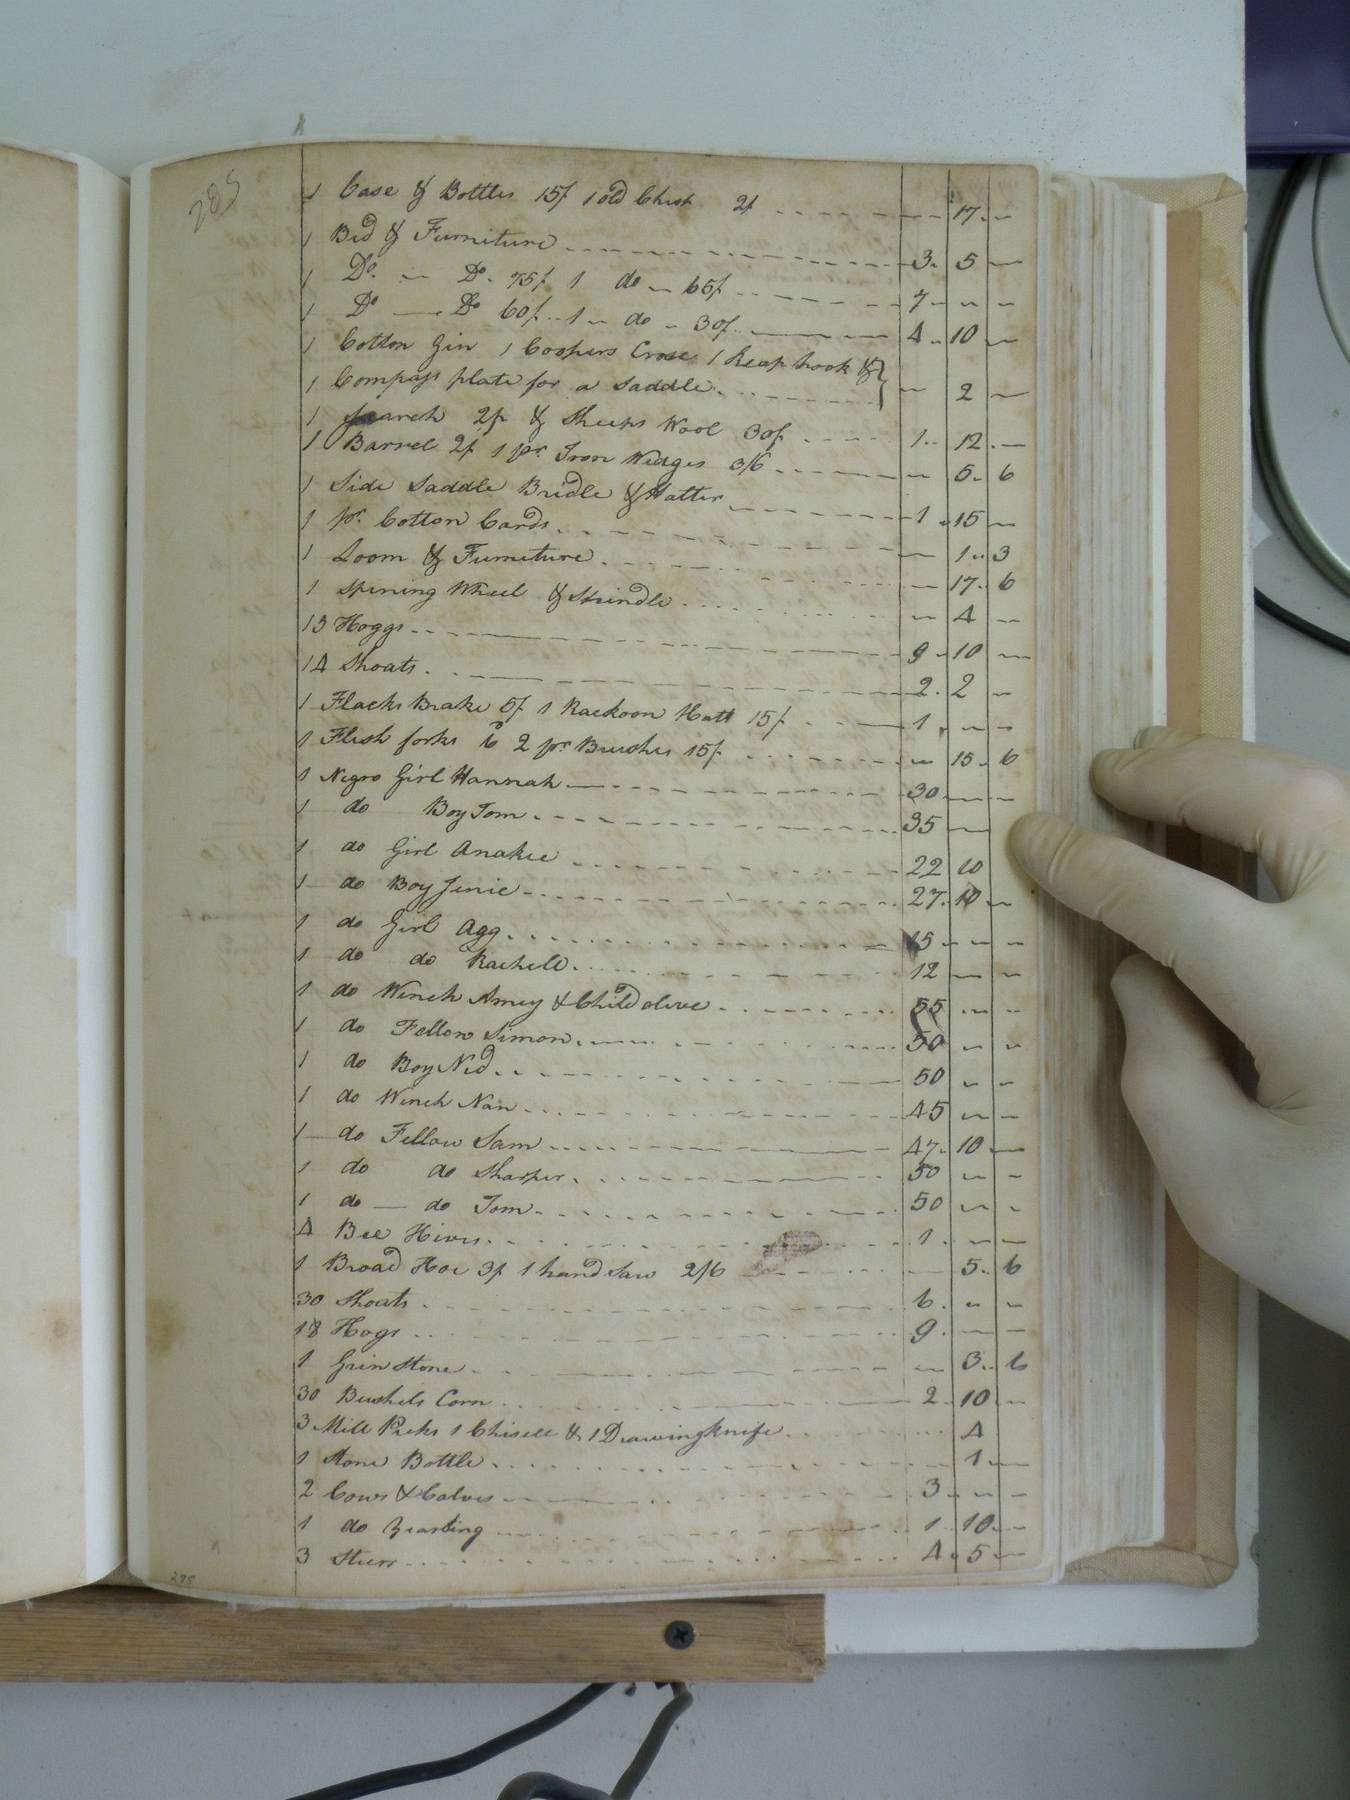 285
1 Case & Bottles 15/ 1 old Chest 2/ - 17 -
1 Bed & Furniture 3. 5 -
1 Do. - Do. 75/ 1 do - 65/ 7 - -
1 Do - Do 60/ 1 - do - 30/ 4 10 -
1 Cotton Gin 1 Coopers Croze 1 Reap hook &
1 Compass plate for a Saddle - 2 -
1 2/ & Sheeps Wool 30/ 1 12 -
1 Barrel 2/ 1 pr. Iron Wedges 3/6 - 5 6
1 Side Saddle Bridle & Halter 1 15 -
1 pr. Cotton Cards - 1 3
1 Loom & Furniture - 17 6
1 Spining Wheel & Spindle - 4 -
13 Hoggs 9 10 -
14 Shoats 2. 2 -
1 Flacks Brake 5/ 1 Rackoon Hatt 15/ 1 - -
1 Flesh forks 2 pr Brushes 15/ - 15 6
1 Negro Girl Hannah 30 - -
1 do Boy Tom 35 -
1 do Girl Anakee 22 10
1 do Boy Jenie 27 10 -
1 do Girl Agg 15 - -
1 do do Rachell 12 - -
1 do Wench Amey & Child olive 55 - -
1 do Fellow Simon 50 - -
1 do Boy Ned 50 - -
1 do Wench Nan 45 - -
1 do Fellow Sam 47 10 -
1 do do Sharper 50 - -
1 do - do Tom 50 - -
4 Bee Hives 1 - -
1 Broad Hoe 3/ 1 hand Saw 2/6 - 5 6
30 Shoats 6 - -
18 Hogs 9 - -
1 Grin Stone - 3 6
30 Bushels Corn 2 10 -
3 Mill Picks 1 Chisell & 1 Drawing knife 4
1 Stone Bottle 1 -
2 Cows & Calves 3 - -
1 do Yearling 1 10 -
3 Steers 4 5 -
285